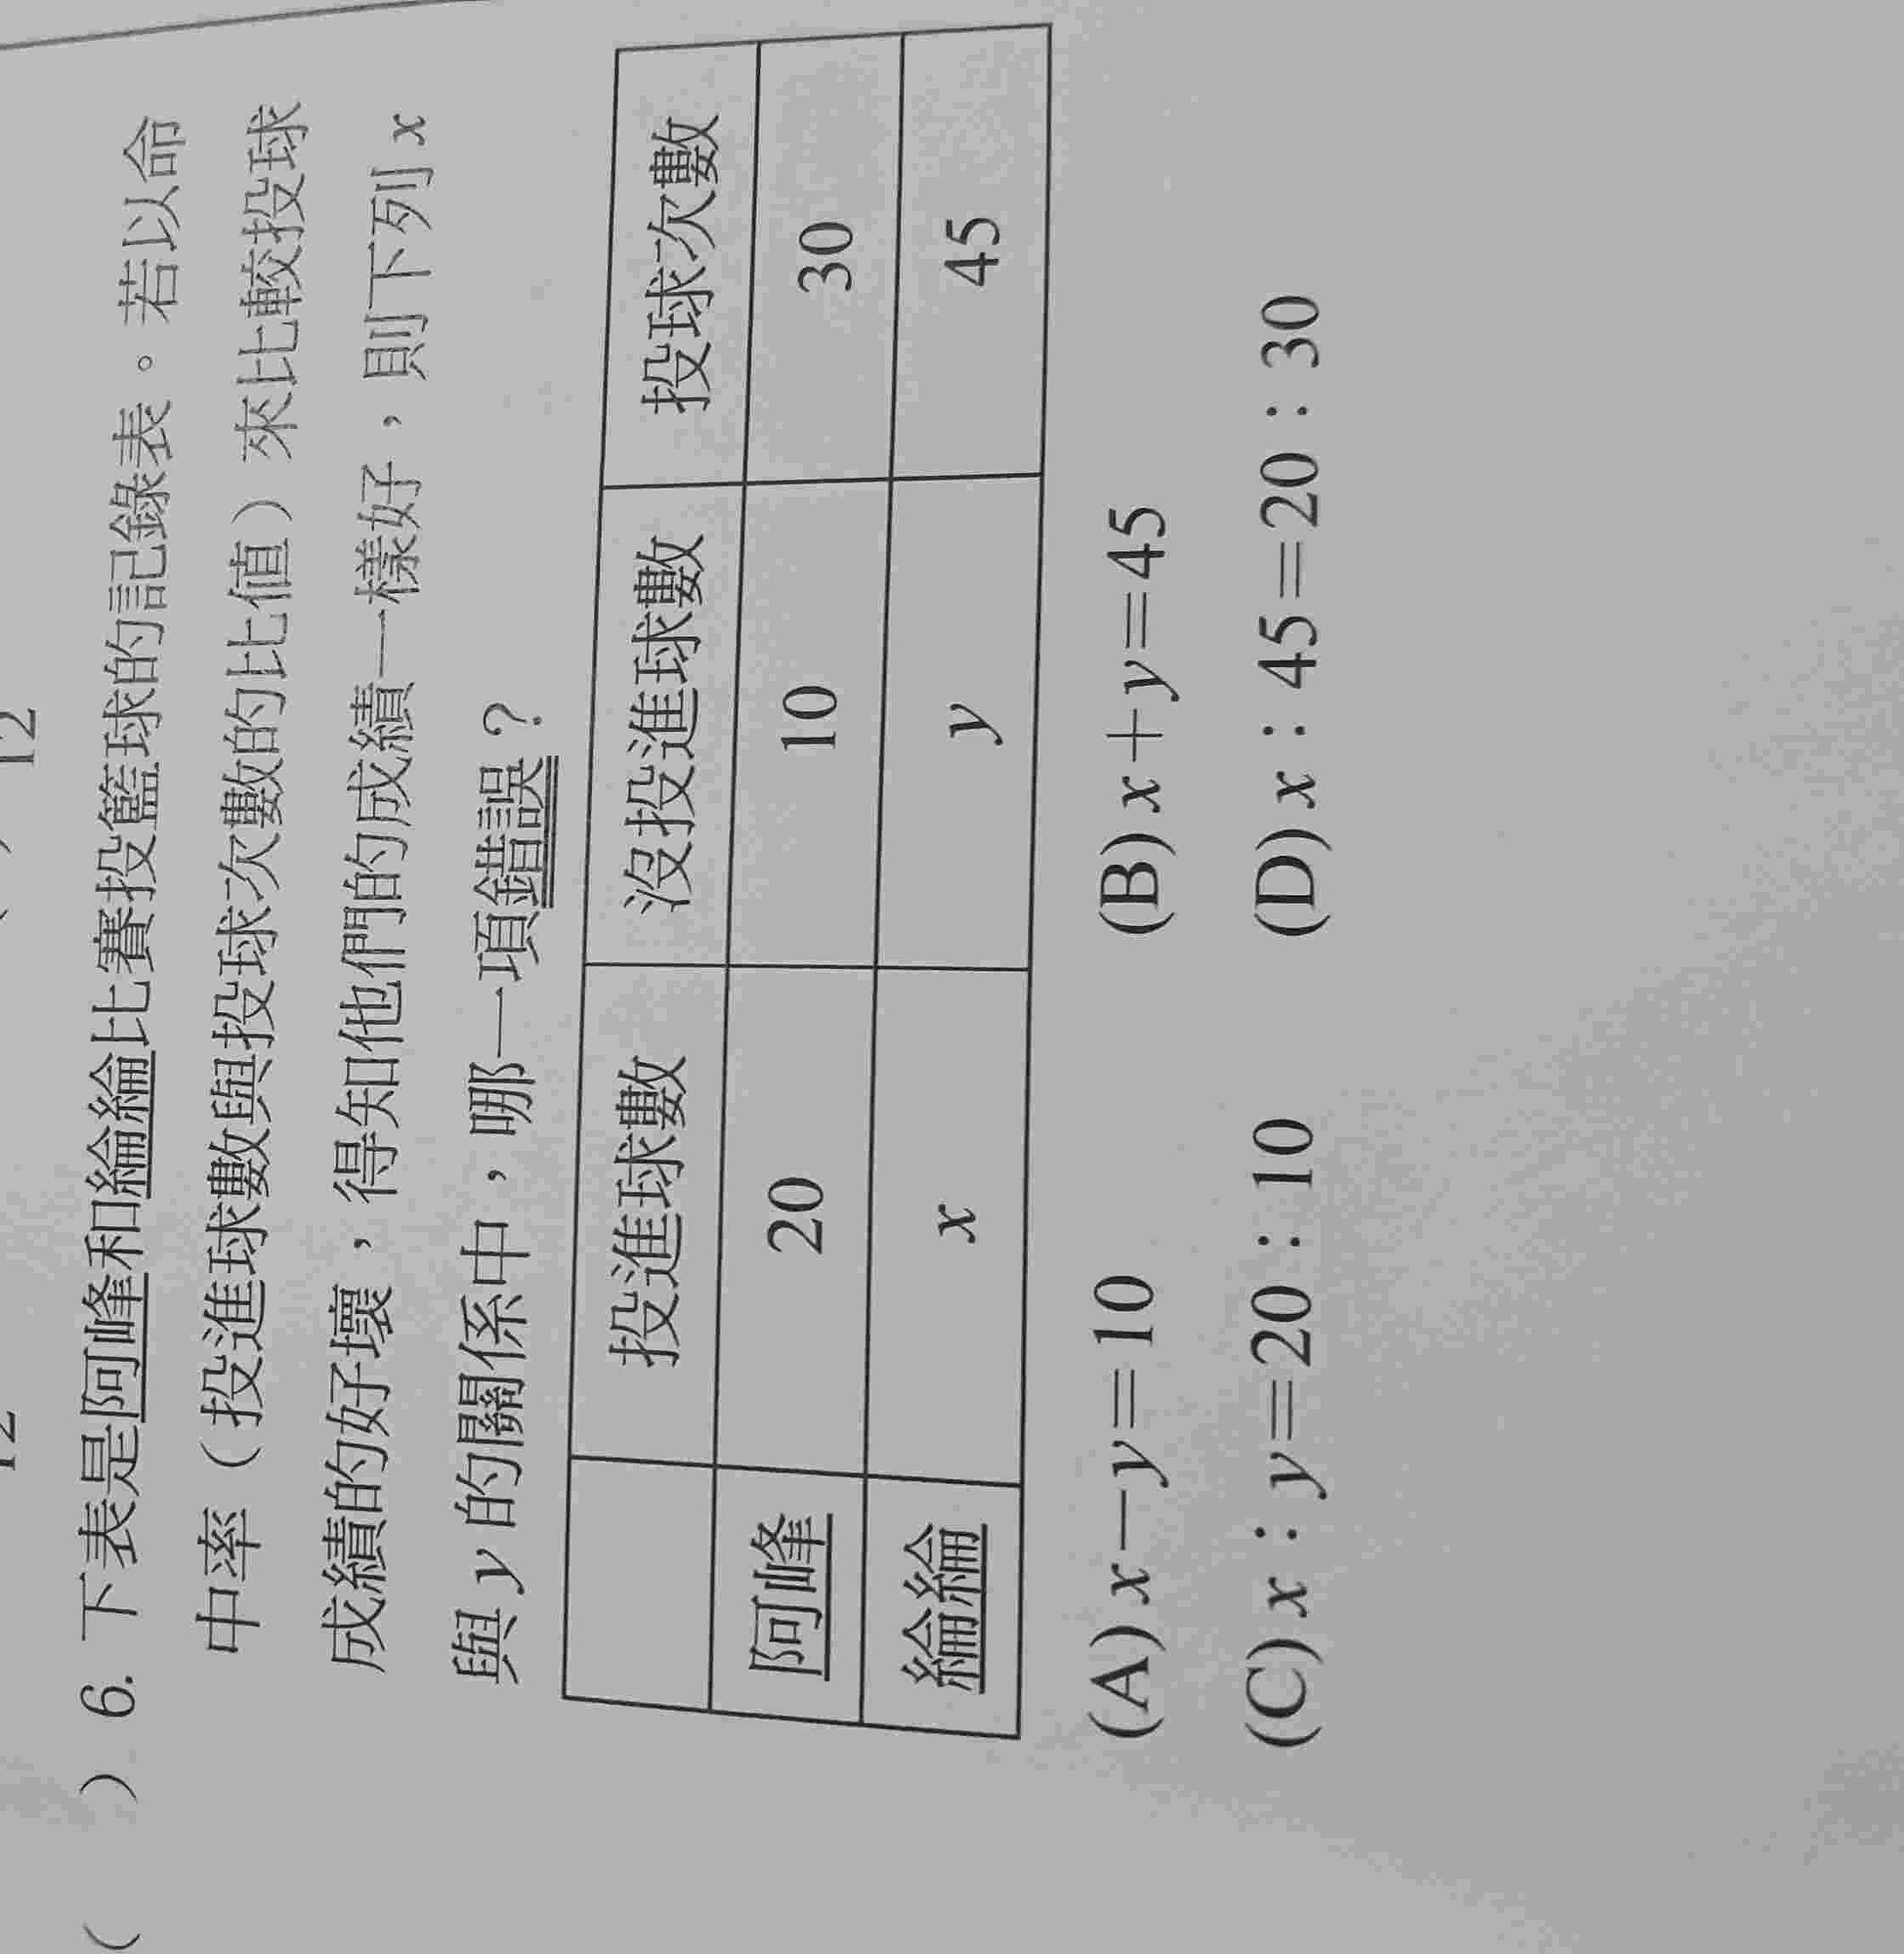 12
12
( ) 6. 下表是阿峰和綸綸比賽投籃球的記錄表。若以命
中率（投進球數與投球次數的比值）來比較投球
成績的好壞，得知他們的成績一樣好，則下列 x
與 y 的關係中，哪一項錯誤？
投進球數 沒投進球數 投球次數
阿峰 20 10 30
綸綸 x y 45
(A) x－y＝10 (B) x＋y＝45
(C) x：y＝20：10 (D) x：45＝20：30